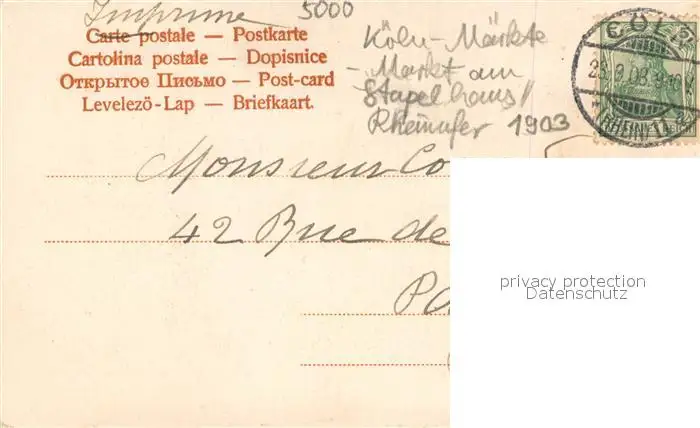 Imprimé
5000
Carte postale — Postkarte
Cartolina postale — Dopisnice
Открытое Письмо — Post-card
Levelezö-Lap — Briefkaart.
Köln-Märkte
- Markt am
Stapelhaus//
Rheinufer 1903
CÖLN
(RHEIN)
Monsieur Co
42 Rue de
privacy protection
Datenschutz